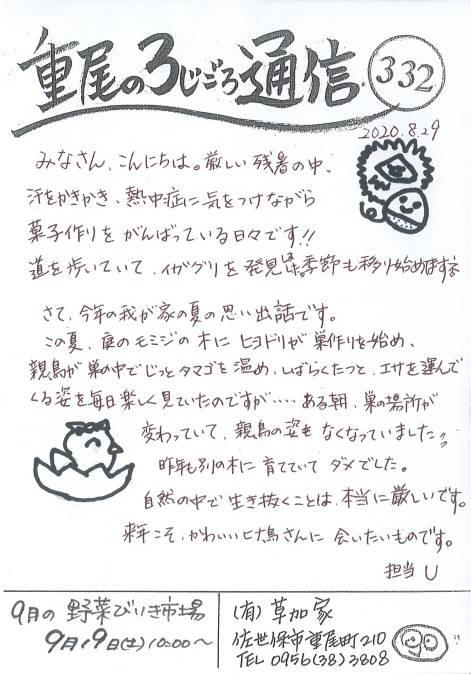 重尾のろじごろ通信 332
2020.8.29
みなさん、こんにちは。厳しい残暑の中、
汗をかきかき、熱中症に気をつけながら
菓子作りをがんばっている日々です!!
道を歩いていて、イガグリを発見しました。季節も移り始めますネ
さて、今年の我が家の夏の思い出話です。
この夏、庭のモミジの木にヒヨドリが巣作りを始め、
親鳥が巣の中でじっとタマゴを温め、しばらくたつと、エサを運んで
くる姿を毎日楽しく見ていたのですが……ある朝、巣の場所が
変わっていて、親鳥の姿もなくなっていました
昨年も別の木に育てていてダメでした。
自然の中で生き抜くことは、本当に厳しいです。
来年こそ、かわいいヒナ鳥さんに会いたいものです。
担当 U
9月の野菜びいき市場
9月19日(土)10:00〜
(有)草加家
佐世保市重尾町210
TEL 0956(38)3808